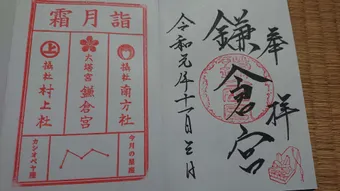 奉拝
鎌倉宮
令和元年十一月三日
霜月詣
摂社 南方社
大塔宮 鎌倉宮
摂社 村上社
今月の星座
カシオペヤ座